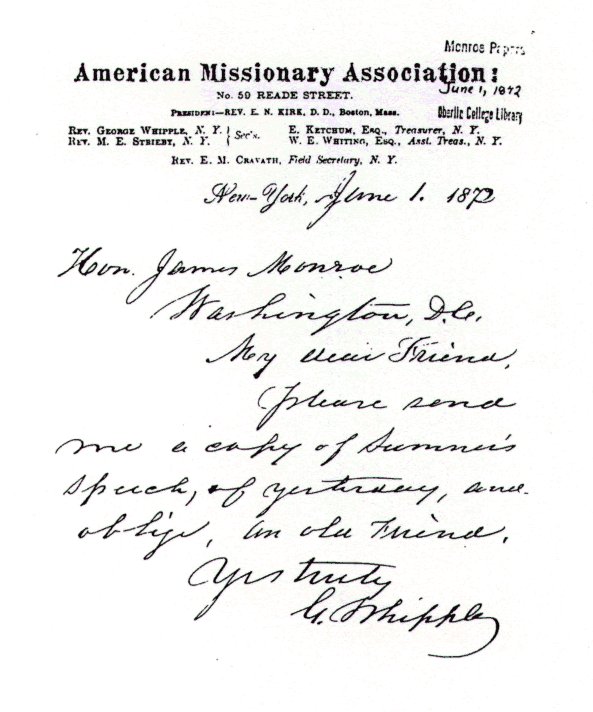 Monroe Papers
American Missionary Association:
June 1, 1872
No. 59 READE STREET.
PRESIDENT—REV. E. N. KIRK, D. D., Boston, Mass.
Oberlin College Library
REV. GEORGE WHIPPLE, N. Y. } Sec's.
REV. M. E. STRIEBY, N. Y.
E. KETCHUM, ESQ., Treasurer, N. Y.
W. E. WHITING, ESQ., Asst. Treas., N. Y.
REV. E. M. CRAVATH, Field Secretary, N. Y.
New-York, June 1. 1872
Hon. James Monroe
Washington, D.C.
My dear Friend,
Please send
me a copy of Sumner's
speech, of yesterday, and
oblige, an old Friend.
Yrs truly
G. Whipple